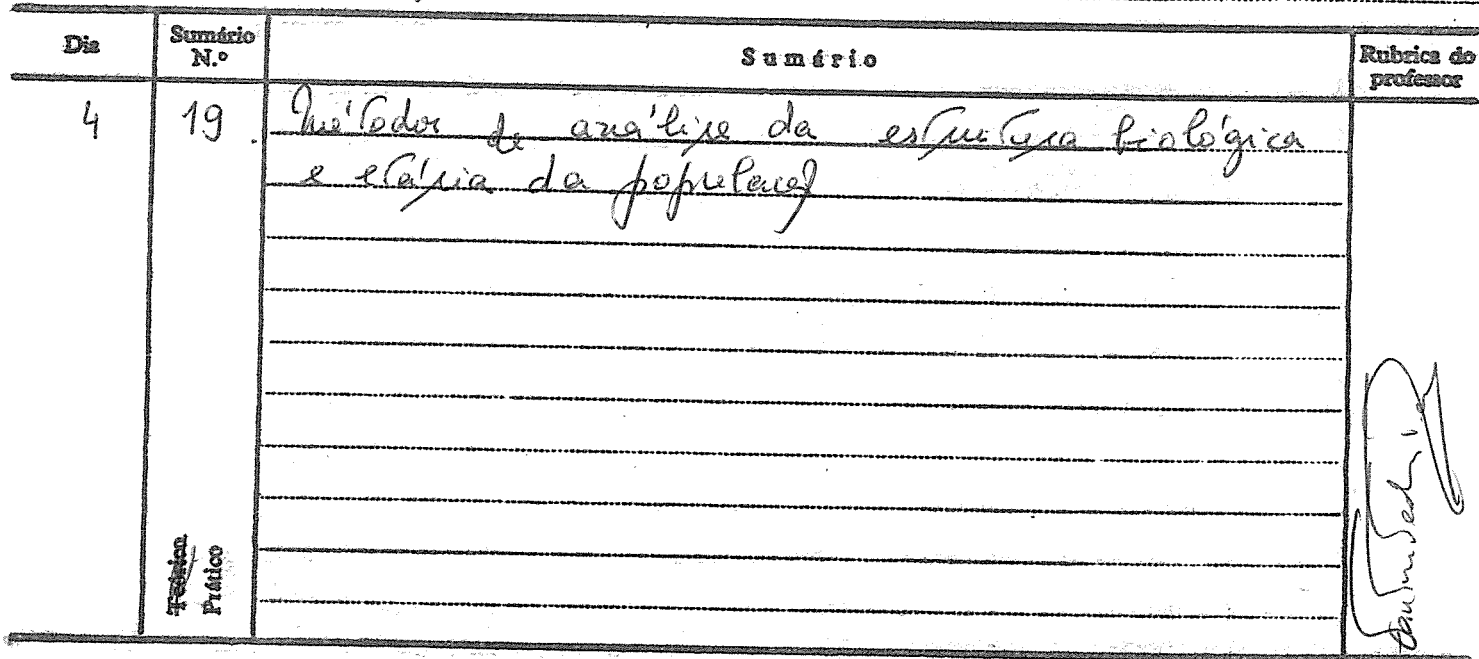 Dia
Sumário N.º
Sumário
Rubrica do professor
4
19
Métodos de análise da estrutura biológica
e etária da população
Teórico
Prático